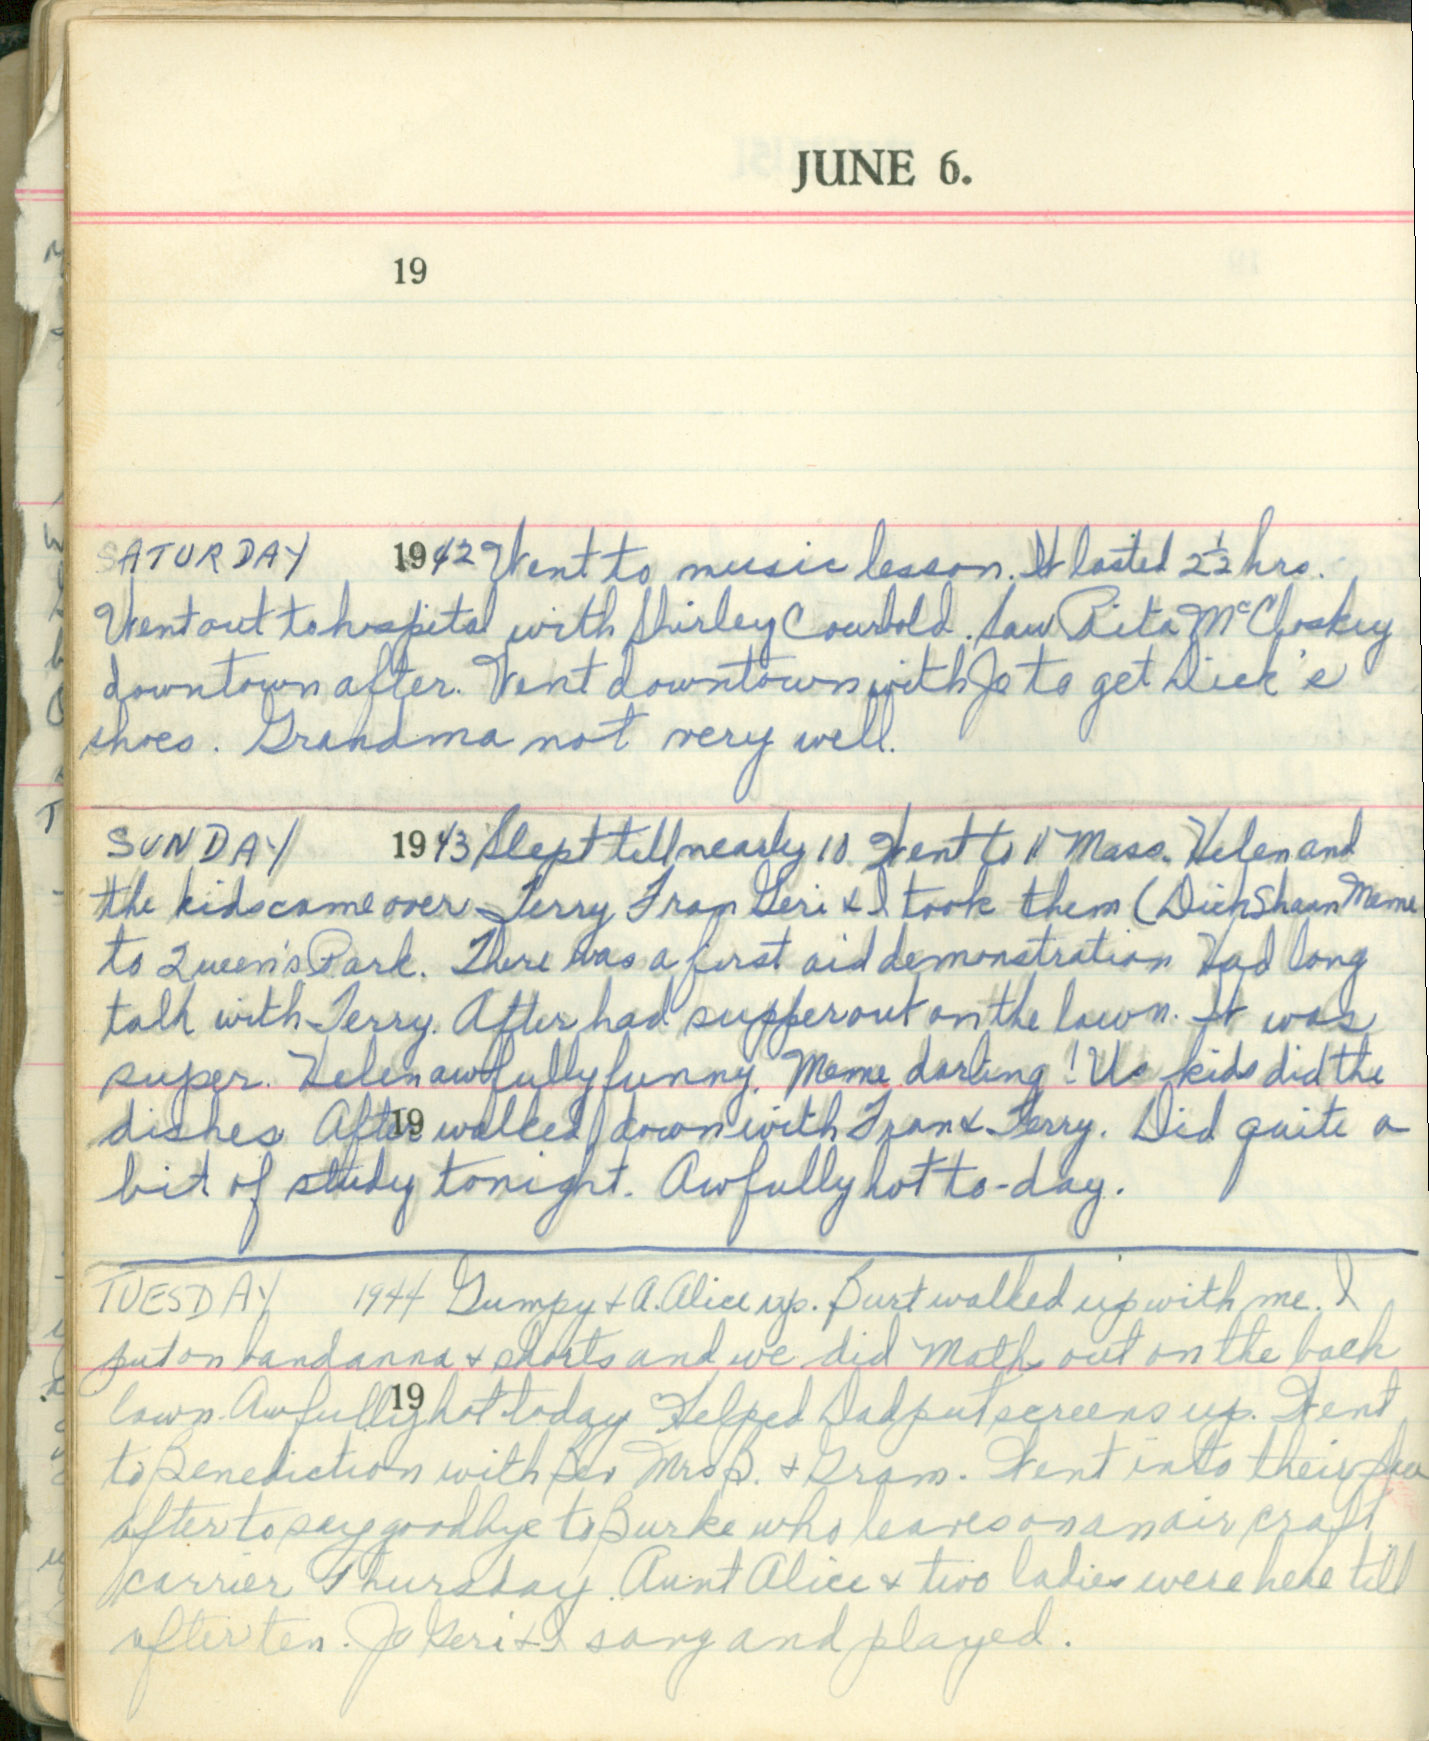 JUNE 6.
19
SATURDAY 1942 Went to music lesson. It lasted 2½ hrs.
Went out to hospital with Shirley Courbold. Saw Rita McCloskey
downtown after. Went downtown with Jo to get Dick's
shoes. Grandma not very well.
SUNDAY 1943 Slept till nearly 10 Went to 11 Mass. Helen and
the kids came over. Terry Fran Geri & I took them (Dick Shaun Meme
to Queen's Park. There was a first aid demonstration Had long
talk with Terry. After had supper out on the lawn. It was
super. Helen awfully funny. Meme darling! Us kids did the
dishes After 19 walked down with Fran & Terry. Did quite a
bit of study tonight. Awfully hot to-day.
TUESDAY 1944 Gumpy & A. Alice up. Burt walked up with me. I
put on bandanna & shorts and we did Math out on the back
19
lawn. Awfully hot today Helped Dad put screens up. Went
to Benediction with Bev Mrs B. & Gram. Went into their
after to say goodbye to Burke who leaves on an air craft
carrier Thursday. Aunt Alice & two ladies were here till
after ten. Jo Geri & I sang and played.